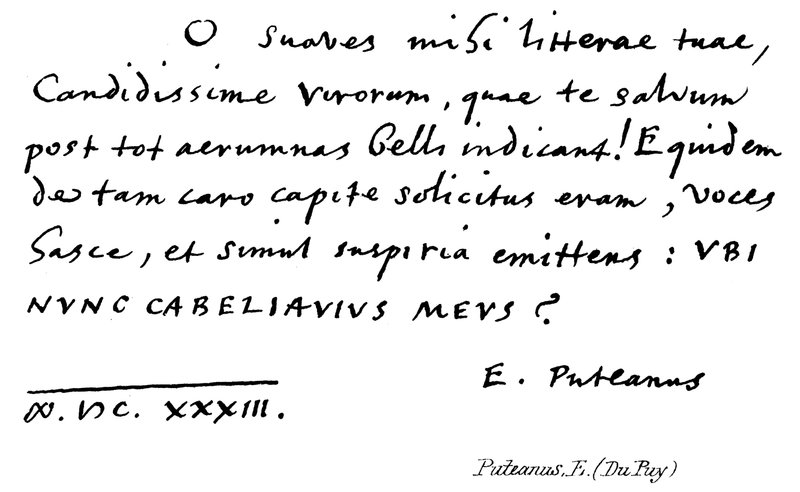 O suaves mihi litterae tuae,
Candidissime virorum, quae te salvum
post tot aerumnas belli indicant! Equidem
de tam caro capite solicitus eram, voces
hasce, et simul suspiria emittens : VBI
NVNC CABELIAVIVS MEVS ?
E. Puteanus
XXXIII.
Puteanus, E. (Du Puy)